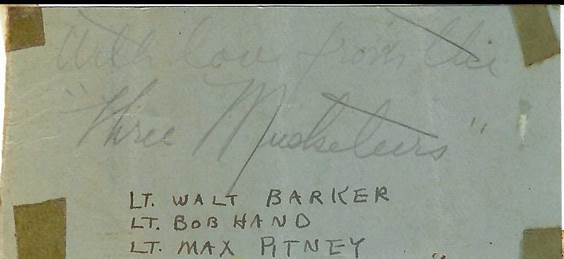 With love from the
"Three Musketeers"
LT. WALT BARKER
LT. BOB HAND
LT. MAX PITNEY